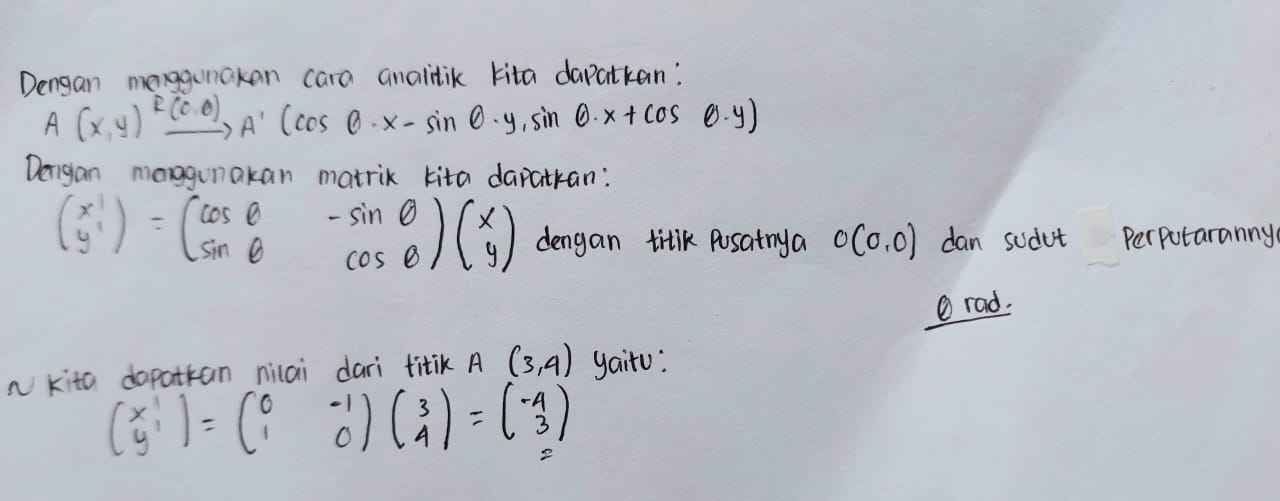 Dengan menggunakan cara analitik kita dapatkan:
A (x,y) R(0.θ) → A' (cos θ.x - sin θ.y, sin θ.x + cos θ.y)
Dengan menggunakan matrik kita dapatkan:
(x' y') = (cos θ -sin θ sin θ cos θ) (x y) dengan titik pusatnya O(0,0) dan sudut perputarannya
θ rad.
~ Kita dapatkan nilai dari titik A (3,4) yaitu:
(x' y') = (0 -1 1 0) (3 4) = (-4 3)